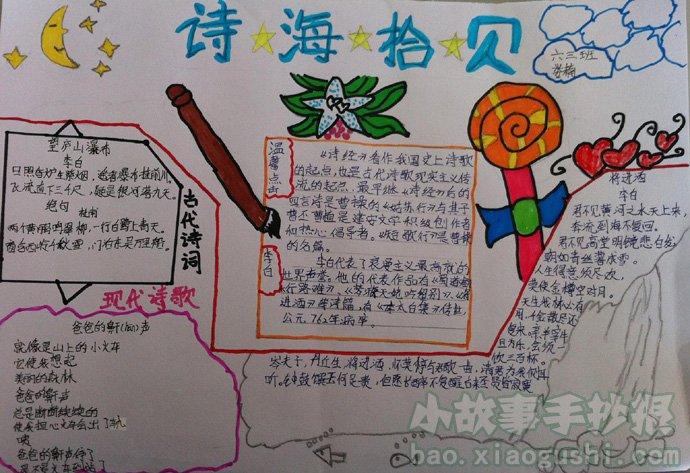 诗海拾贝
六三班
望庐山瀑布
李白
日照香炉生紫烟,遥看瀑布挂前川。
飞流直下三千尺,疑是银河落九天。
绝句
杜甫
两个黄鹂鸣翠柳,一行白鹭上青天。
窗含西岭千秋雪,门泊东吴万里船。
古代诗词
现代诗歌
爸爸的鼾(hān)声
就像是山上的小火车
它使我想起
美丽的森林
爸爸的鼾声
总是断断续续的
使我担心火车会出了轨
咦
爸爸的鼾声停了
是不是火车到站了
温馨点击
《诗经》看作我国史上诗歌
的起点,也是古代诗歌现实主义传
流的起点,最早继《诗经》后的
四言诗是曹操的
曹丕曹植是建安文学积极创作者
和热心倡导者。《短歌行》是曹操
的名篇。
李白
李白代表了浪漫主义最高峰的
世界声誉。他的代表作品有《蜀道难》
《行路难》、《梦游天姥吟留别》、《将
进酒》等诗篇,有《李太白集》传世,
公元762年病卒
将进酒
李白
君不见黄河之水天上来,
奔流到海不复回。
君不见高堂明镜悲白发,
朝如青丝暮成雪。
人生得意须尽欢,
莫使金樽空对月。
天生我材必有
用,千金散尽还
复来,烹羊宰牛
且为乐,会须一
饮三百杯。
岑夫子,丹丘生,将进酒,杯莫停,与君歌一曲,请君为我侧耳
听。钟鼓馔玉何足贵,但愿长醉不复醒,古来圣贤皆寂寞
小故事手抄报
bao.xiaogushi.com